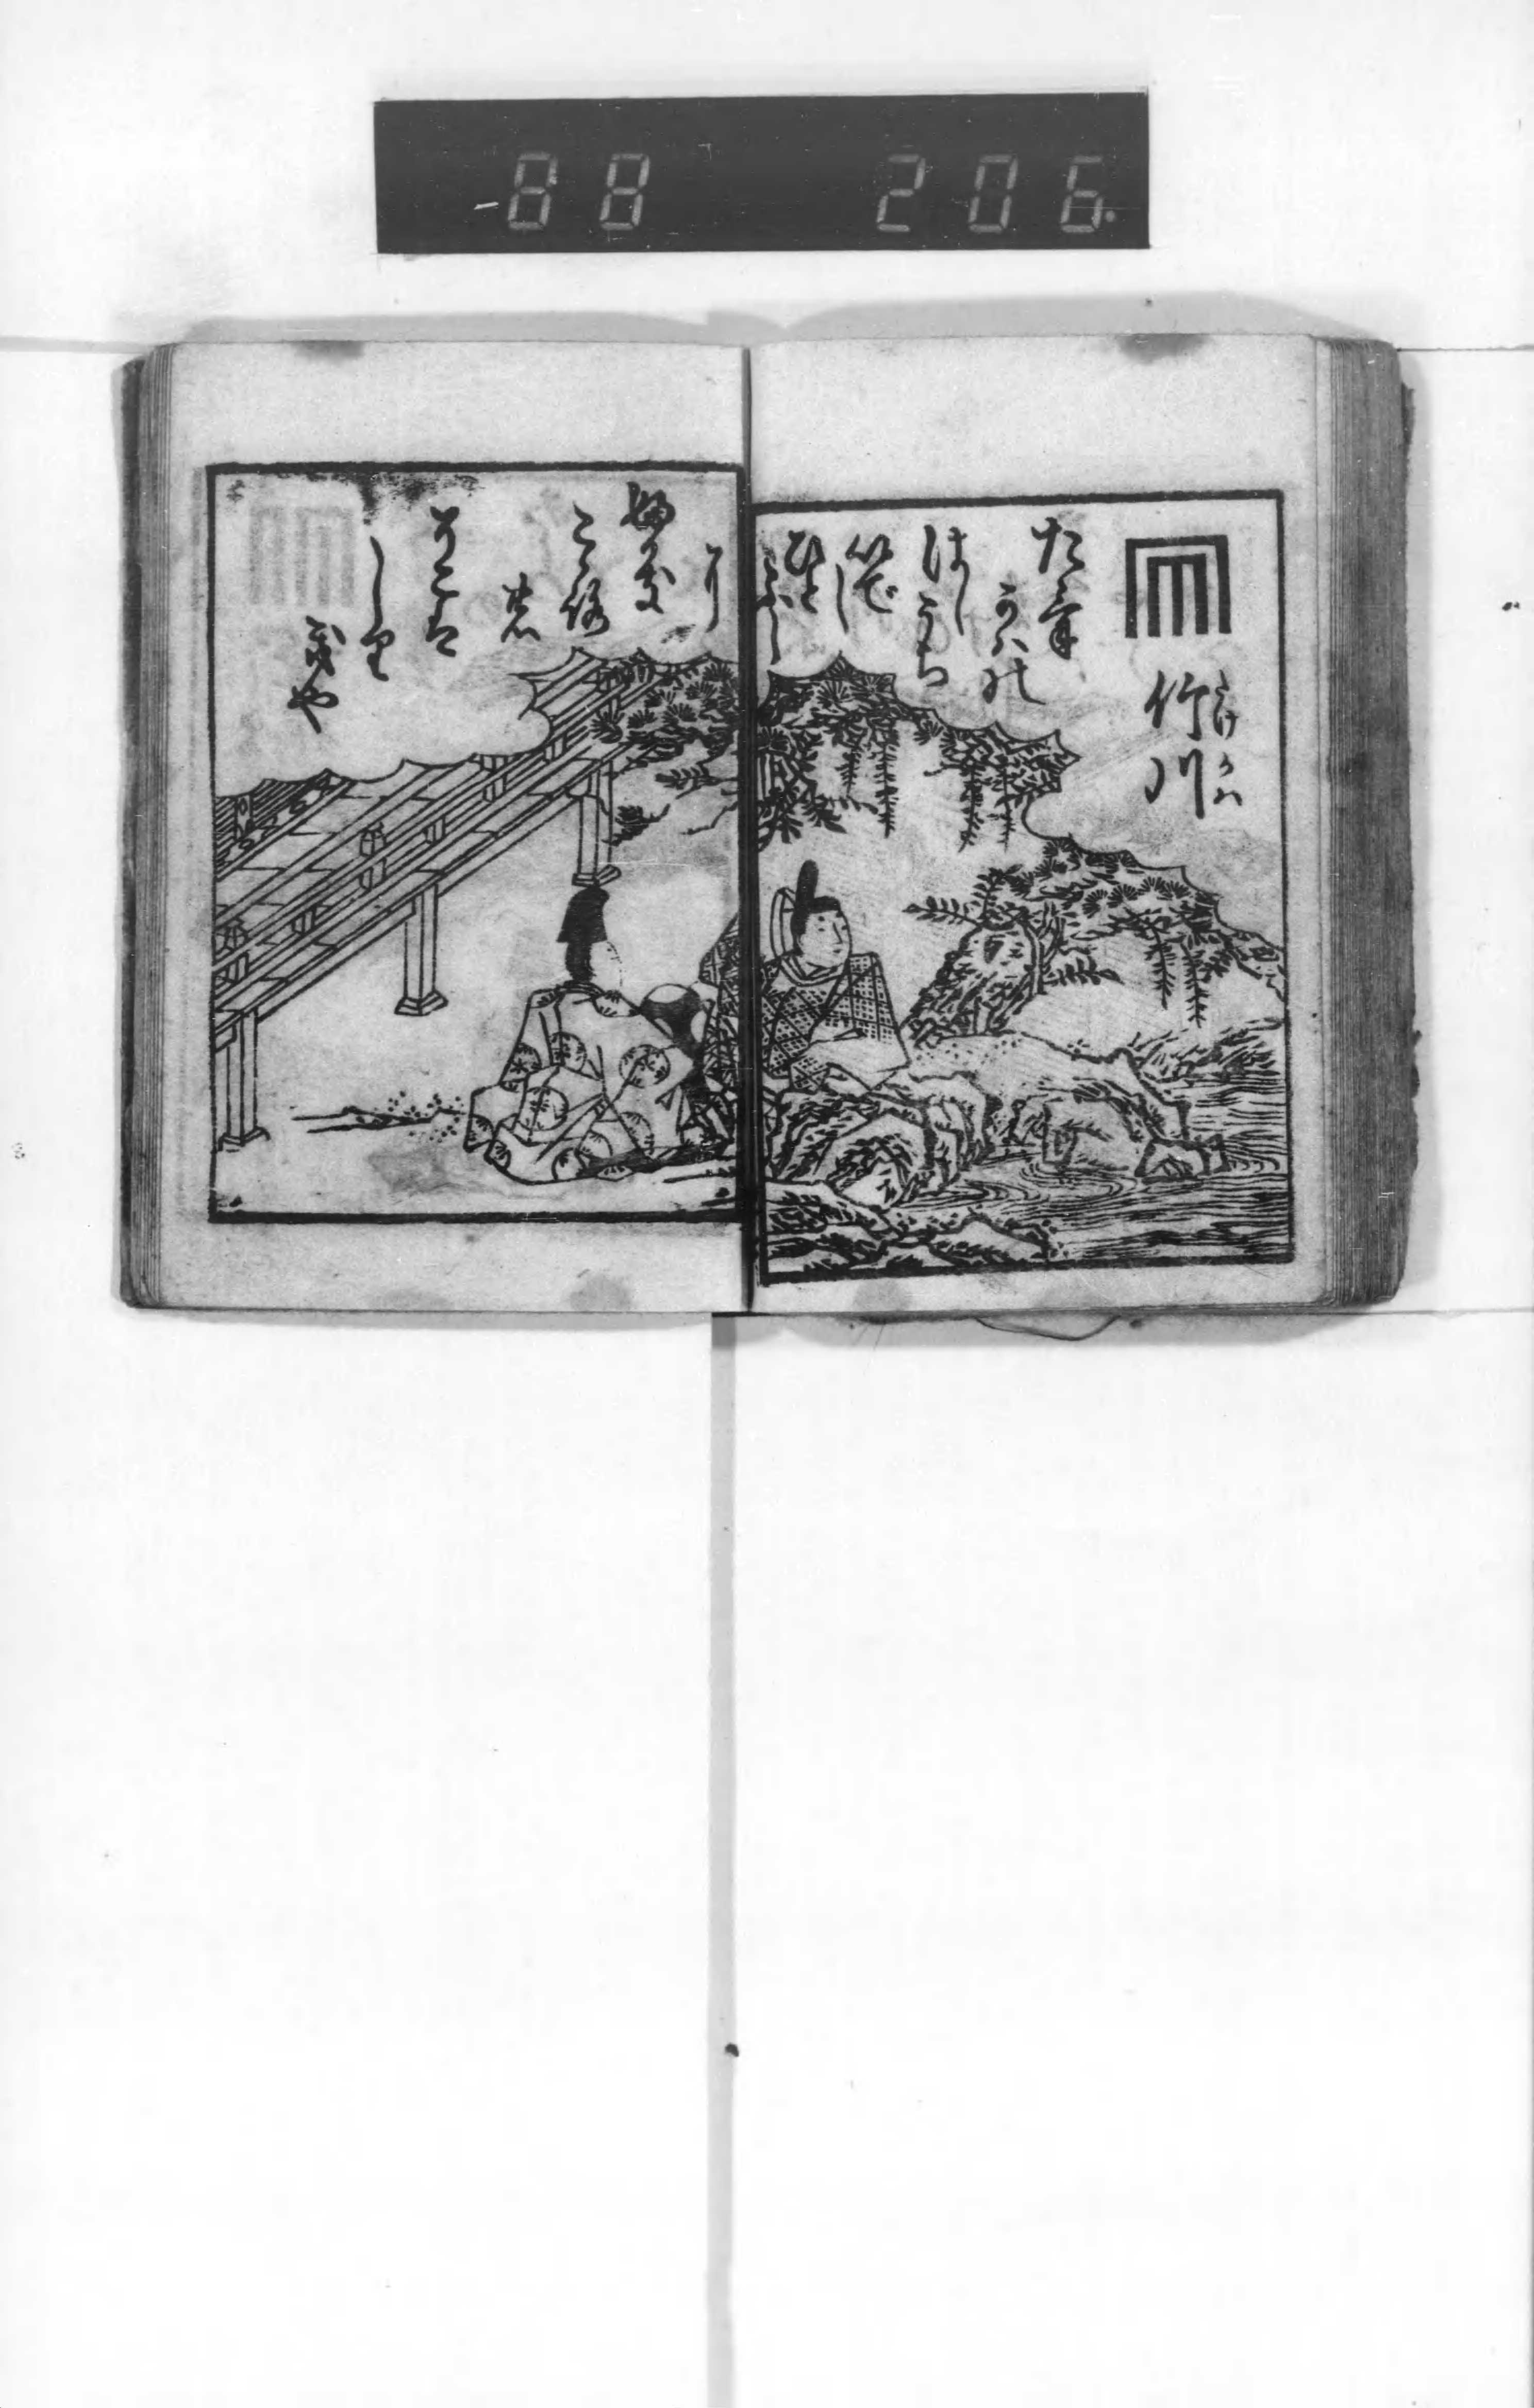 88 206
竹川
たけかは
たけ
かはの
はしうち
いでし
ひと
ふし
に
ふかき
こゝろ
の
そこは
しり
きや